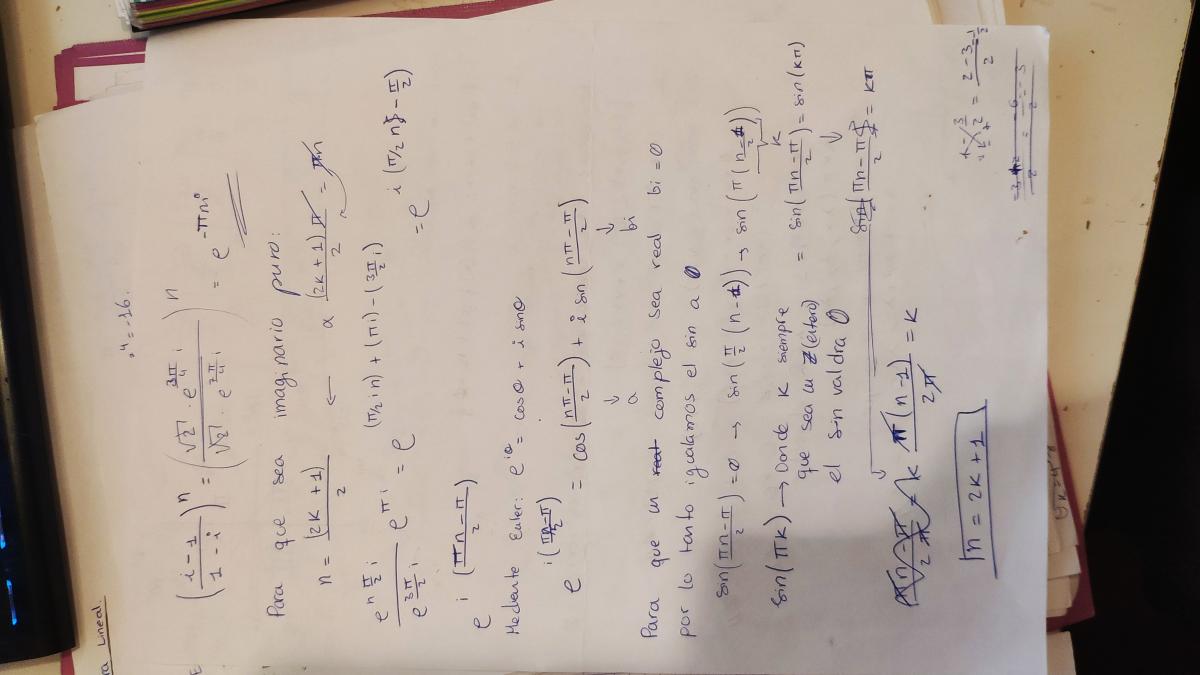 ra Lineal.
⁴ = -16.
((i-1)/(1-i))^n = ((√2 · e^(3π/4 i))/(√2 · e^(7π/4 i)))^n = e^(-πni)
Para que sea imaginario puro:
n = (2k+1)/2 ← a (2k+1)π/2 = πn
(e^(n π/2 i))/(e^(3π/2 i)) e^(πi) = e^((π/2 i n) + (πi) - (3π/2 i)) = e^(i(π/2 n - π/2))
e^(i((πn-π)/2))
Mediante Euler: e^(iθ) = cosθ + i sinθ
e^(i((πn-π)/2)) = cos((nπ-π)/2) + i sin((nπ-π)/2)
↓ a ↓ bi
Para que un real complejo sea real bi = 0
por lo tanto igualamos el sin a 0
sin((πn-π)/2) = 0 → sin(π/2 (n-1)) → sin(π((n-1)/2))
k
sin(πk) → Donde k siempre = sin((πn-π)/2) = sin(kπ)
que sea un Z (entero) ↓
el sin valdra 0 (πn-π)/2 = kπ
(πn-π)/2π = k π(n-1)/2π = k
n = 2k+1